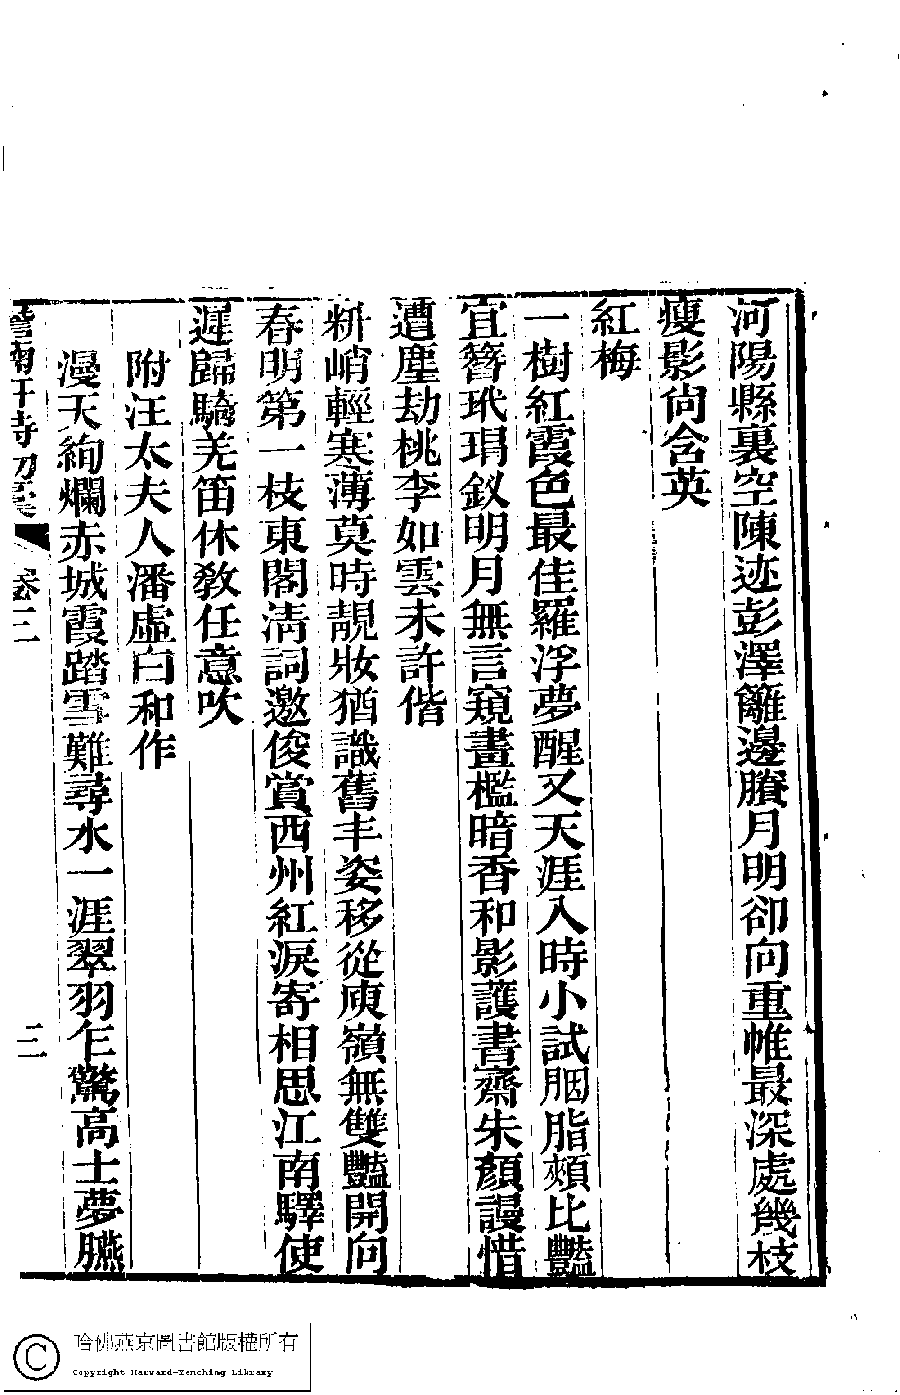 河陽縣裏空陳迹彭澤籬邊賸月明卻向重帷最深處幾枝
瘦影尙含英
紅梅
一樹紅霞色最佳羅浮夢醒又天涯入時小試胭脂頰比豔
宜簪玳瑁釵明月無言窺畫檻暗香和影護書齋朱顏謾惜
遭塵劫桃李如雲未許偕
料峭輕寒薄莫時靚妝猶識舊丰姿移從庾嶺無雙豔開向
春明第一枝東閣淸詞邀俊賞西州紅淚寄相思江南驛使
遲歸騎羌笛休敎任意吹
附汪太夫人潘虛白和作
漫天絢爛赤城霞踏雪難尋水一涯翠羽乍驚高士夢臙
詹南干寺初稾
卷三
三
哈佛燕京圖書館版權所有
Copyright Harvard-Yenching Library